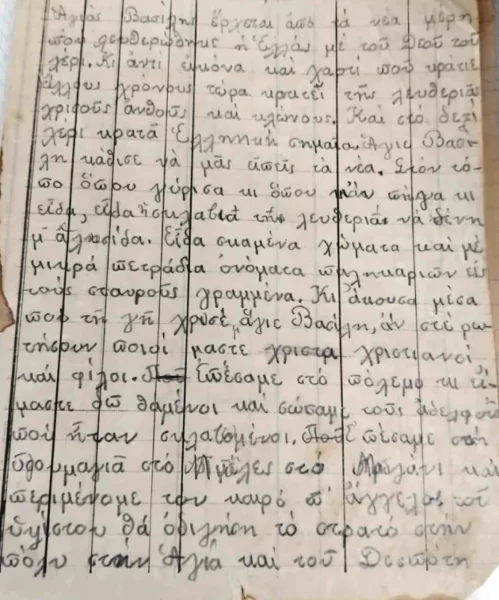 Ἅγιος Βασίλης ἔρχεται ἀπό τά νέα μέρη
ποῦ λευθερώθηκε ἡ Ἑλλάς μέ τοῦ Θεοῦ τοῦ
χέρι. Κι ἀντί εικόνα καί χαρτί ποῦ κράτιε
ἄλλους χρόνους τώρα κρατεῖ τῆς λευθεριᾶς
χρισοῦς ἀνθοῦς καί κλώνους. Καί στό δεξί
χέρι κρατᾶ Ἑλληνική σημαία. Ἁγιε Βασί
λη κάθισε νά μᾶς εἰπεῖς τά νέα. Στόν τό-
πο ὅπου γύρισα κι ὅπου πῆγα κι
εἶδα, εἶδα σκλαβιά τῆς λευθεριᾶς νά δένη
μ' ἁλυσίδα. Εἶδα σκαμένα χώματα καί μέ
μικρά πετράδια ὀνόματα παληκαριῶν εἰς
τούς σταυρούς γραμμένα. Κι ἄκουσα μέσα
ποπ τή γῆ χρυσέ Ἅγιε Βασίλη, ἄν σέ ρω-
τήσουν ποιοί μαστε χριστα χριστιανοί
καί φίλοι. Ἐπέσαμε στό πόλεμο κι εἴ
μαστε δῶ θαμένοι καί σώσαμε τούς ἀδελφούς
ποῦ ἦταν σκλαβομένοι. πέσαμε στή
στό Μπέλες στό καί
περιμένομε τον καιρό π' ἄγγελος τοῦ
ὑψίστου θά ὁδιγήση τό στρατό στήν
πόλυ στήν Ἁγιά καί τοῦ Δεσπότη